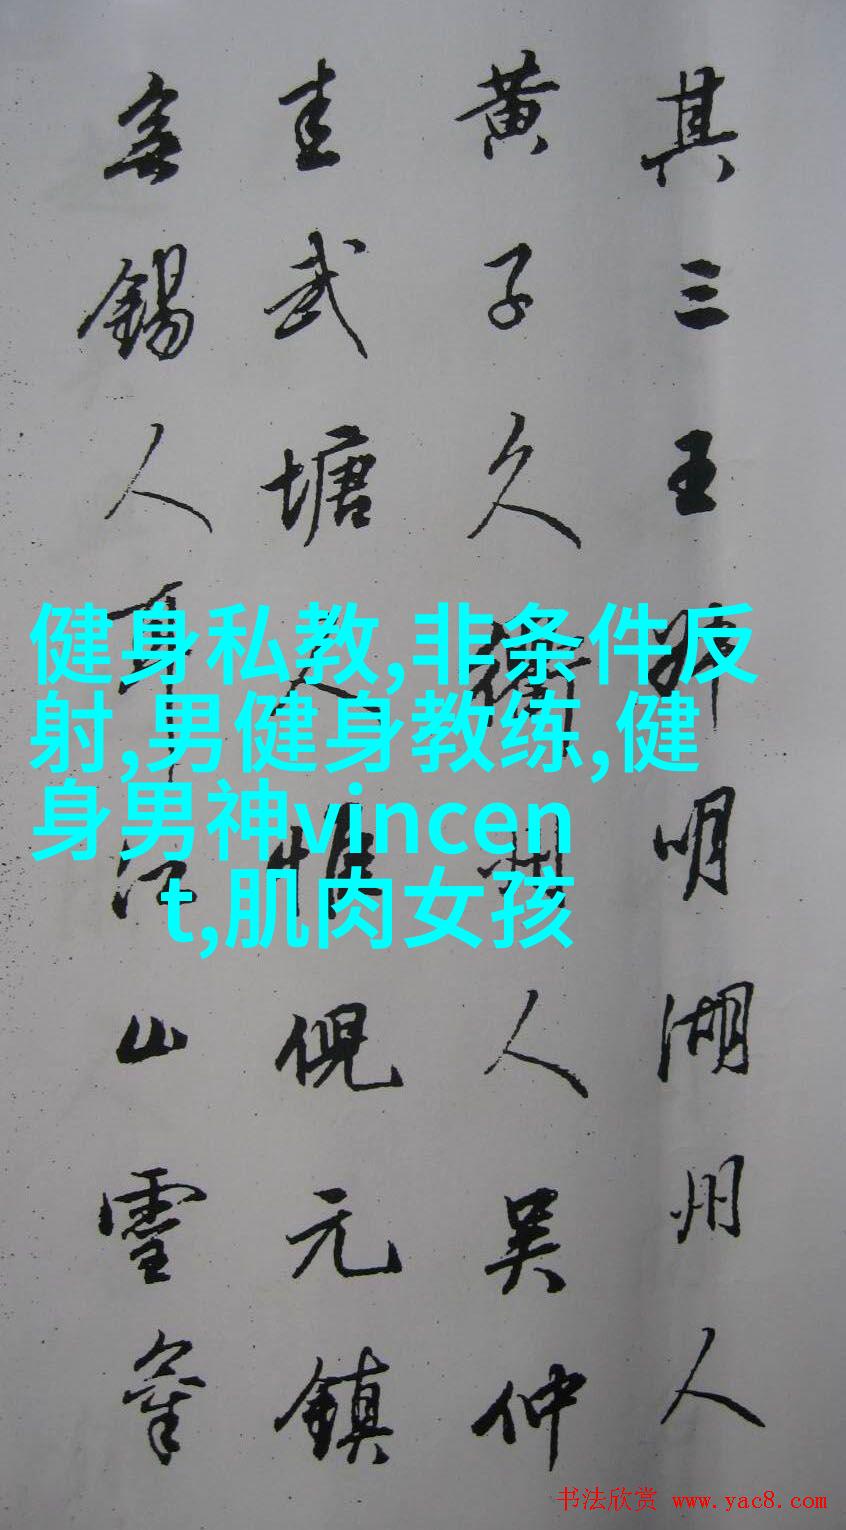 其三王叔明湖州人
黄子久衢州人吴仲
圭武塘人惟倪元鎮
無錫人耳江山
健身私教,非条件反
射,男健身教练,健
身男神vincen
t,肌肉女孩
书法欣赏 www.yac8.com